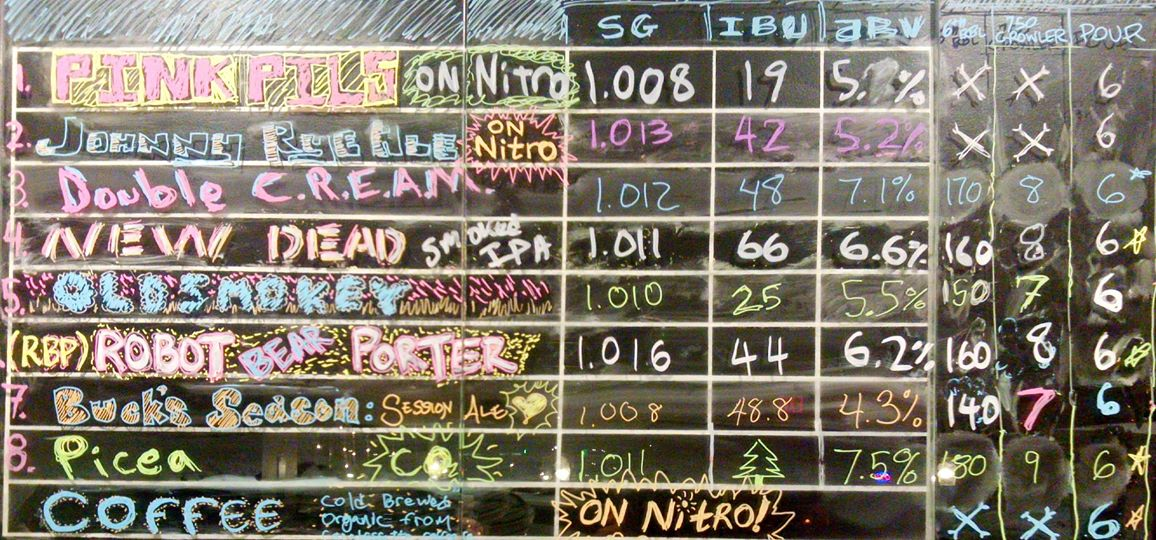 SG IBU aBV 6th BBL 750 GROWLER POUR
1. PINK PILS ON NITRO 1.008 19 5. % X X 6
2. JOHNNY RYE ALE ON NITRO 1.013 42 5.2% X X 6
3. Double C.R.E.A.M. 1.012 48 7.1% 170 8 6
4. NEW DEAD SMOKED IPA 1.011 66 6.6% 160 8 6
5. OLD SMOKEY 1.010 25 5.5% 150 7 6
(RBP) ROBOT BEAR PORTER 1.016 44 6.2% 160 8 6
7. Buck's Season: SESSION ALE 1.008 48.8 4.3% 140 7 6
8. Picea CO2 1.011 7.5% 180 9 6
COFFEE Cold Brewed ON NiTRO! X X 6
Organic from